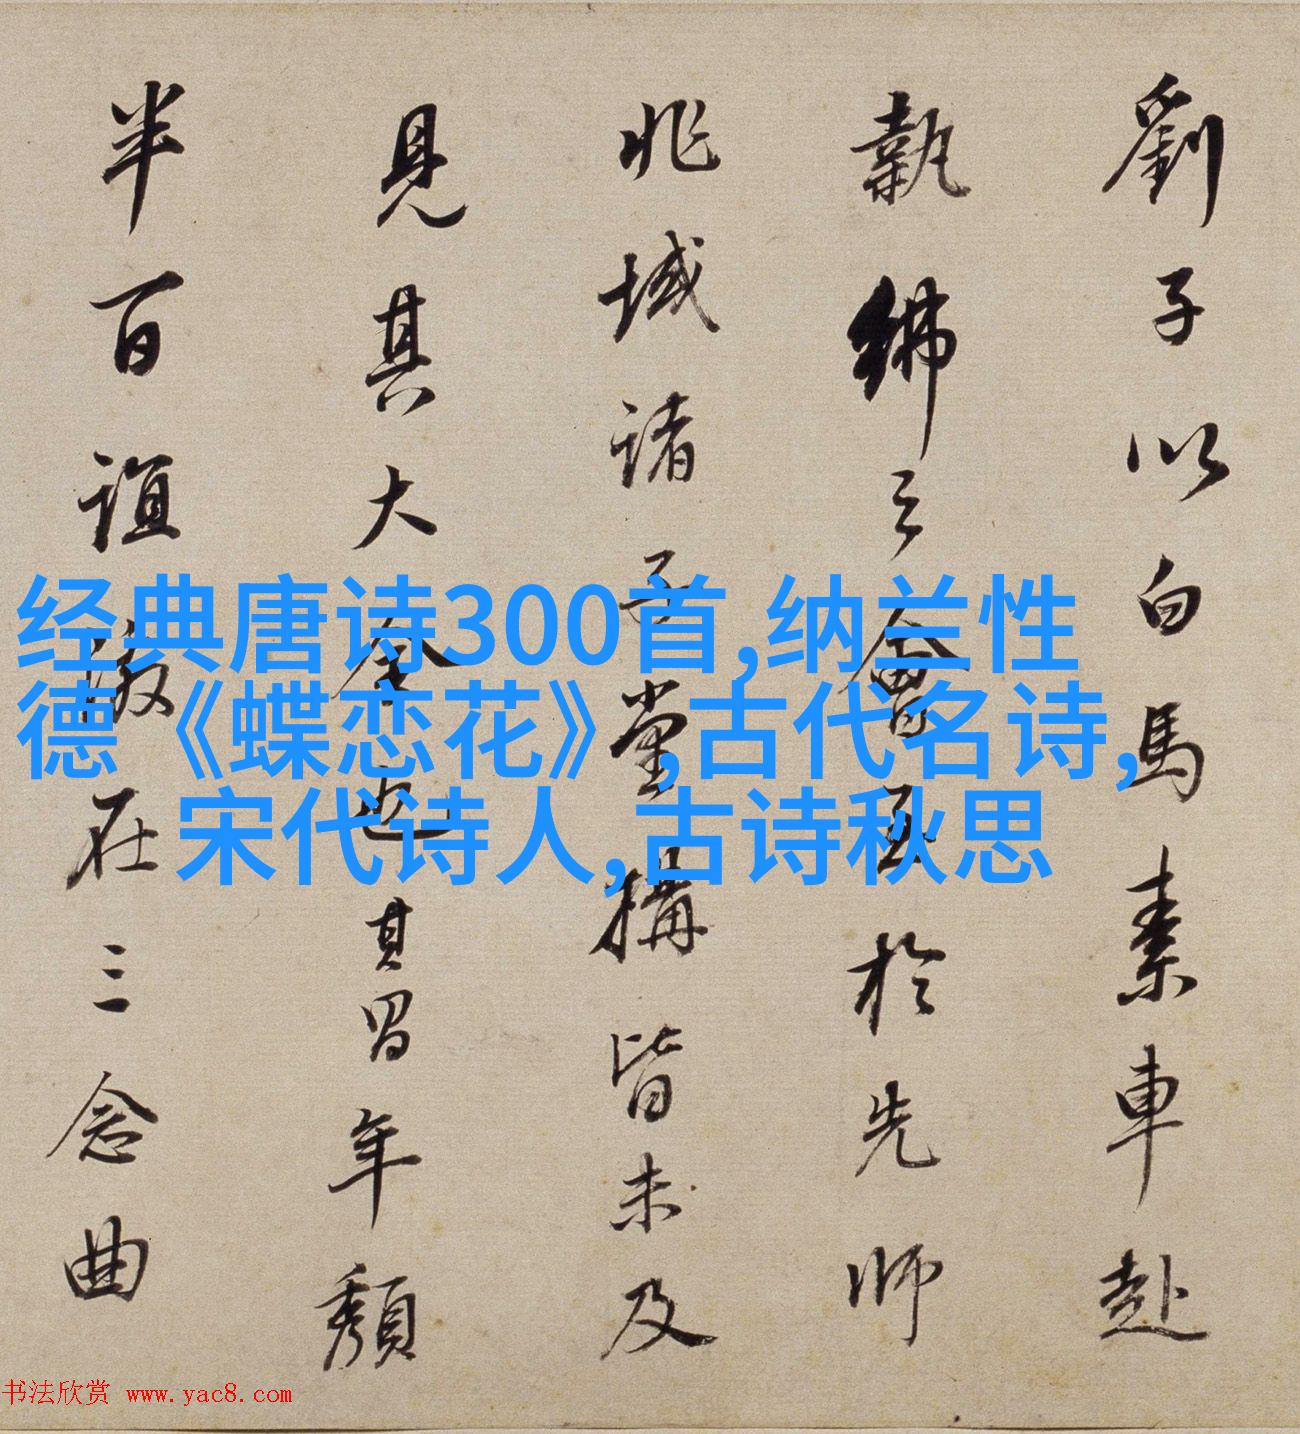 劉子以白馬素車赴
執紼之會於先師
兆域諸子堂構皆未及
見其大全也其年頹
半百誼在三念曲
经典唐诗300首,纳兰性
德《蝶恋花》,古代名诗,
宋代诗人,古诗秋思
书法欣赏 www.yac8.com